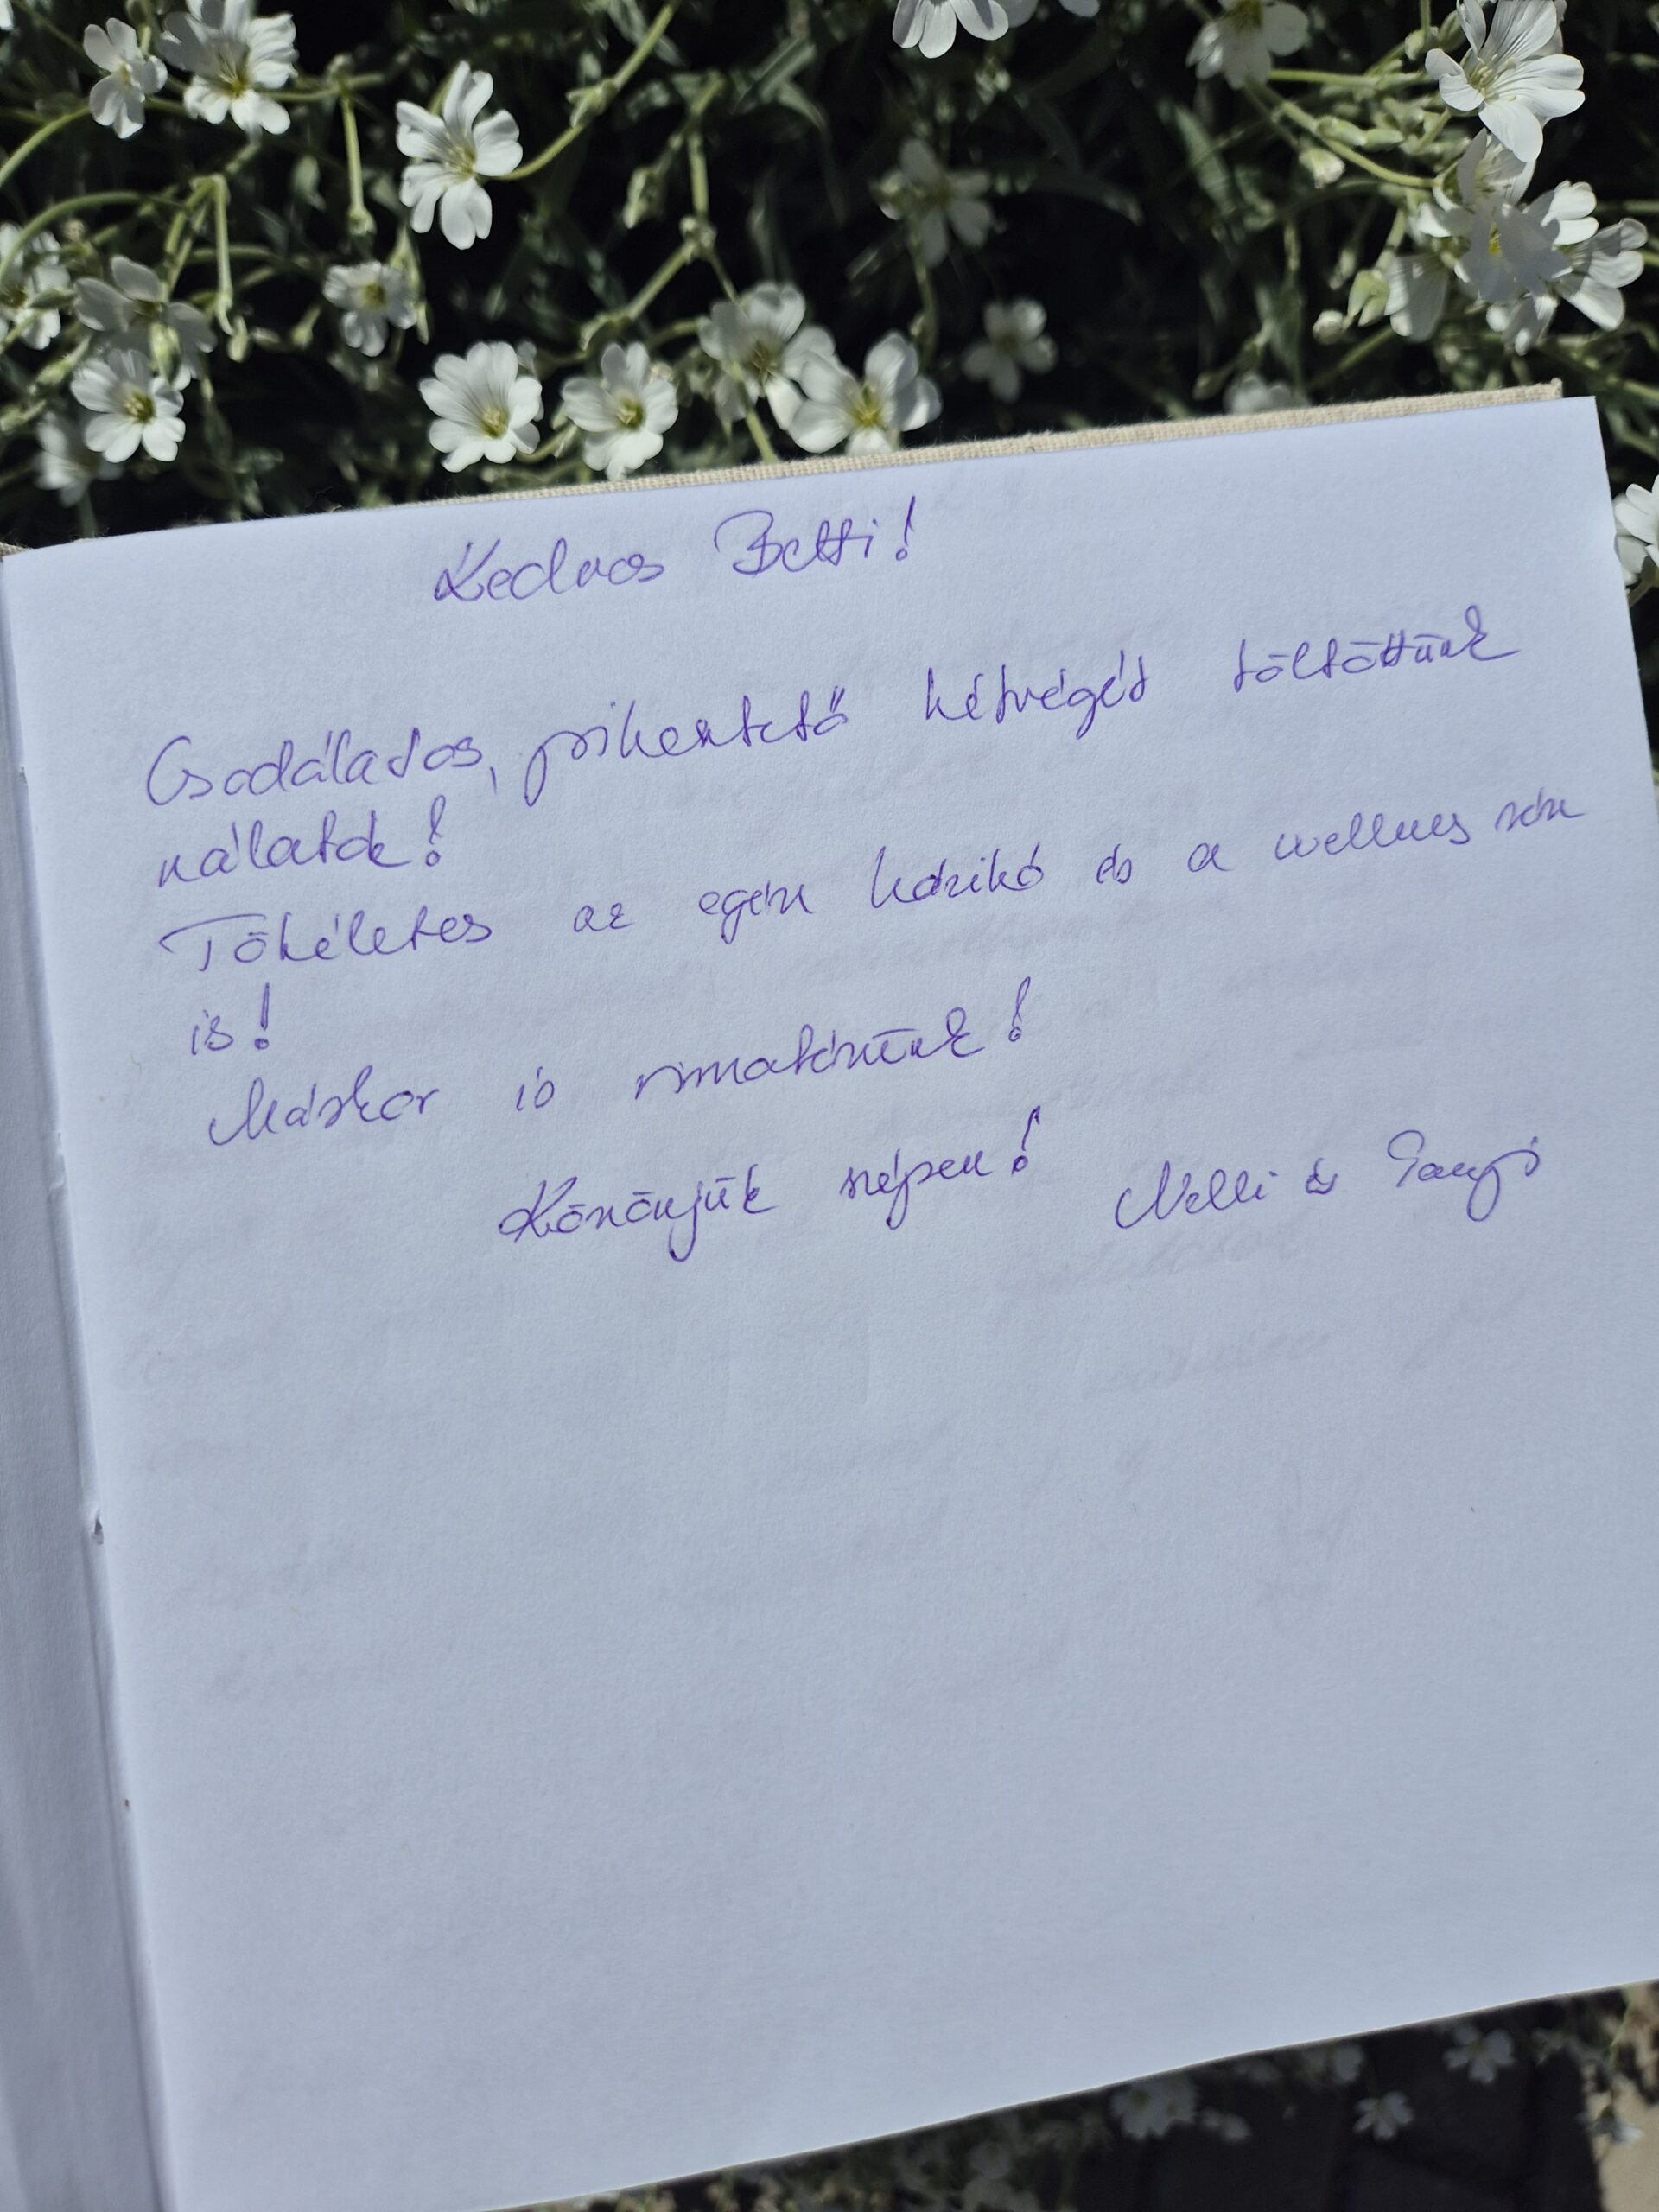 Kedves Betti!
Csodálatos, pihentető hétvégét töltöttünk
nálatok!
Tökéletes az egész házikó és a wellness rész
is!
Máskor is visszatérünk!
Köszönjük szépen! Nelli és